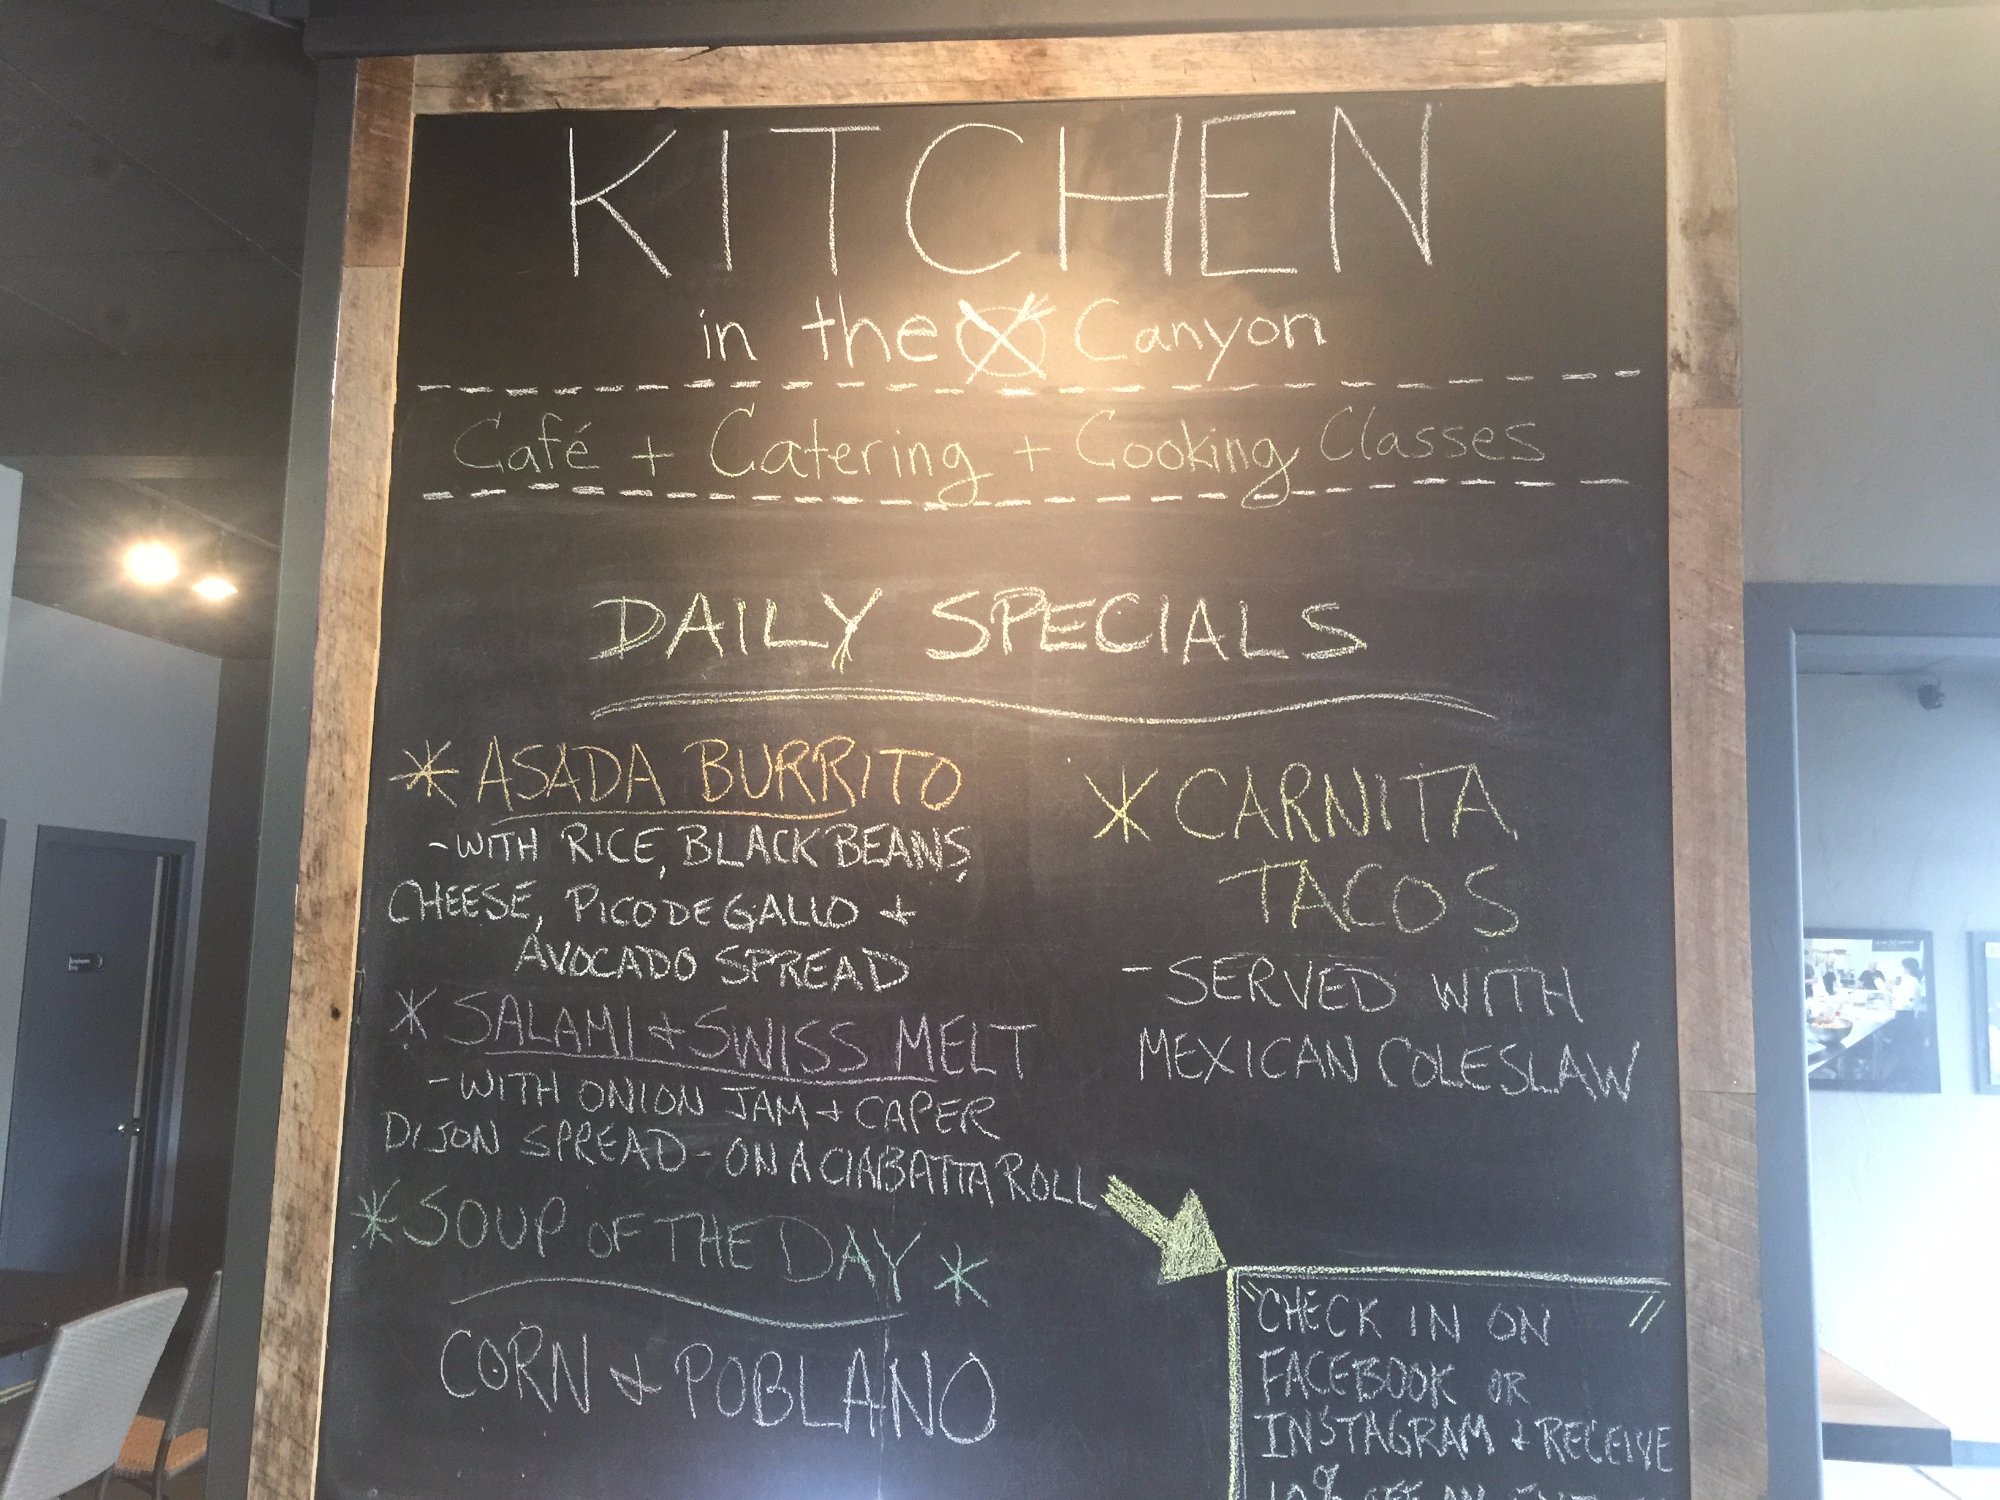 KITCHEN
in the Canyon
Café + Catering + Cooking Classes
DAILY SPECIALS
* ASADA BURRITO
- WITH RICE, BLACK BEANS,
CHEESE, PICO DE GALLO &
AVOCADO SPREAD
* SALAMI & SWISS MELT
- WITH ONION JAM & CAPER
DIJON SPREAD - ON A CIABATTA ROLL
* SOUP OF THE DAY *
CORN & POBLANO
* CARNITA
TACOS
- SERVED WITH
MEXICAN COLESLAW
"CHECK IN ON
FACEBOOK OR
INSTAGRAM & RECEIVE
10% OFF AN